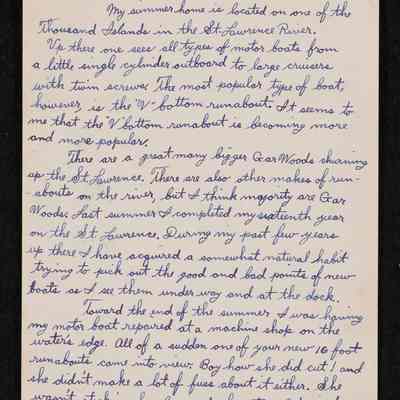 My summer home is located on one of the
Thousand Islands in the St. Lawrence River.
Up there one sees all types of motor boats from
a little single cylinder outboard to large cruisers
with twin screws. The most popular type of boat,
however, is the "V" bottom runabout. It seems to
me that the "V" bottom runabout is becoming more
and more popular.
There are a great many bigger Gar Woods skimming
up the St. Lawrence. There are also other makes of run-
abouts on the river, but I think majority are Gar
Woods. Last summer I completed my sixteenth year
on the St. Lawrence. During my past few years
up there I have acquired a somewhat natural habit
trying to pick out the good and bad points of new
boats as I see them under way and at the dock.
Toward the end of the summer I was having
my motor boat repaired at a machine shop on the
water's edge. All of a sudden one of your new 16 foot
runabouts came into view. Boy how she did cut! and
she didn't make a lot of fuss about it either. She
wasn't